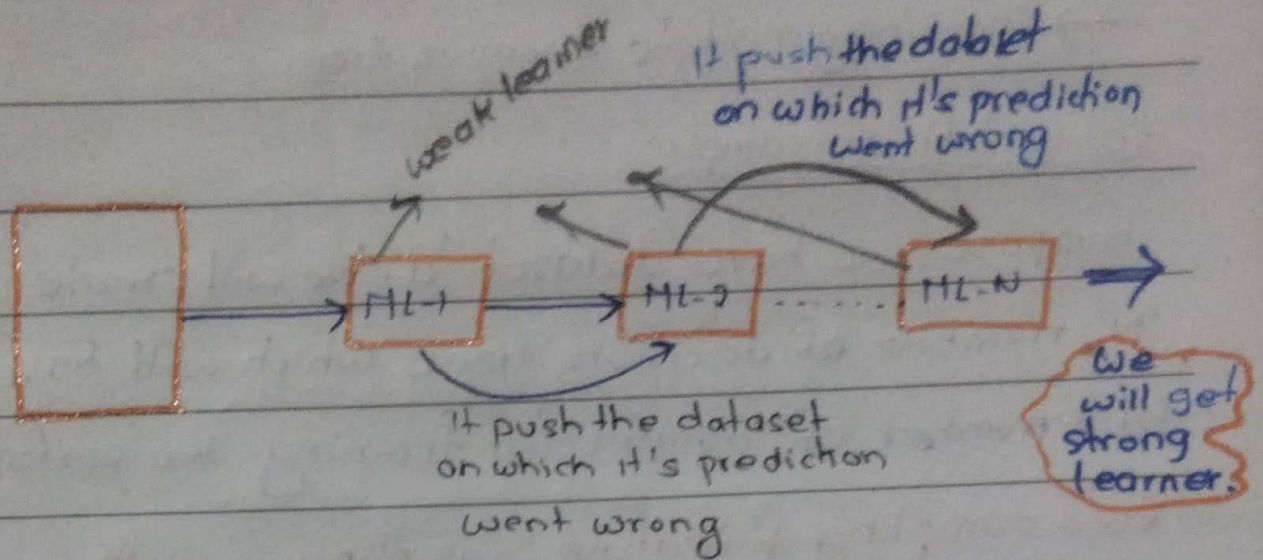 weak learner
It push the dataset
on which it's prediction
went wrong
ML-1
ML-2
ML-N
It push the dataset
on which it's prediction
went wrong
we
will get
strong
learner.